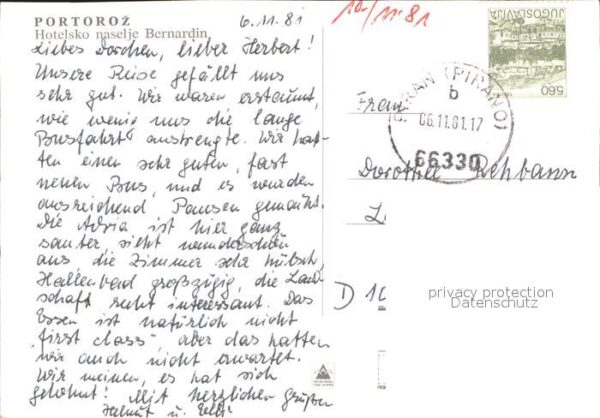 PORTOROŽ
Hotelsko naselje Bernardin
6.11.81
10./11.81
JUGOSLAVIJA
560
PIRAN (PIRANO)
b
06.11.81.17
66330
Liebes Dorchen, lieber Herbert!
Unsere Reise gefällt uns
sehr gut. Wir waren erstaunt,
wie wenig uns die lange
Busfahrt anstrengte. Wir hat-
ten einen sehr guten, fast
neuen Bus, und es wurden
ausreichend Pausen gemacht.
Die Adria ist hier ganz
sauber, sieht wunderschön
aus die Zimmer sehr hübsch,
Hallenbad großzügig, die Land-
schaft recht interessant. Das
Essen ist natürlich nicht
"first class", aber das hatten
wir auch nicht erwartet.
Wir meinen, es hat sich
gelohnt! Mit herzlichen Grüßen
Helmut u.
Frau
Dorothee Rehbann
L
D 1
privacy protection
Datenschutz